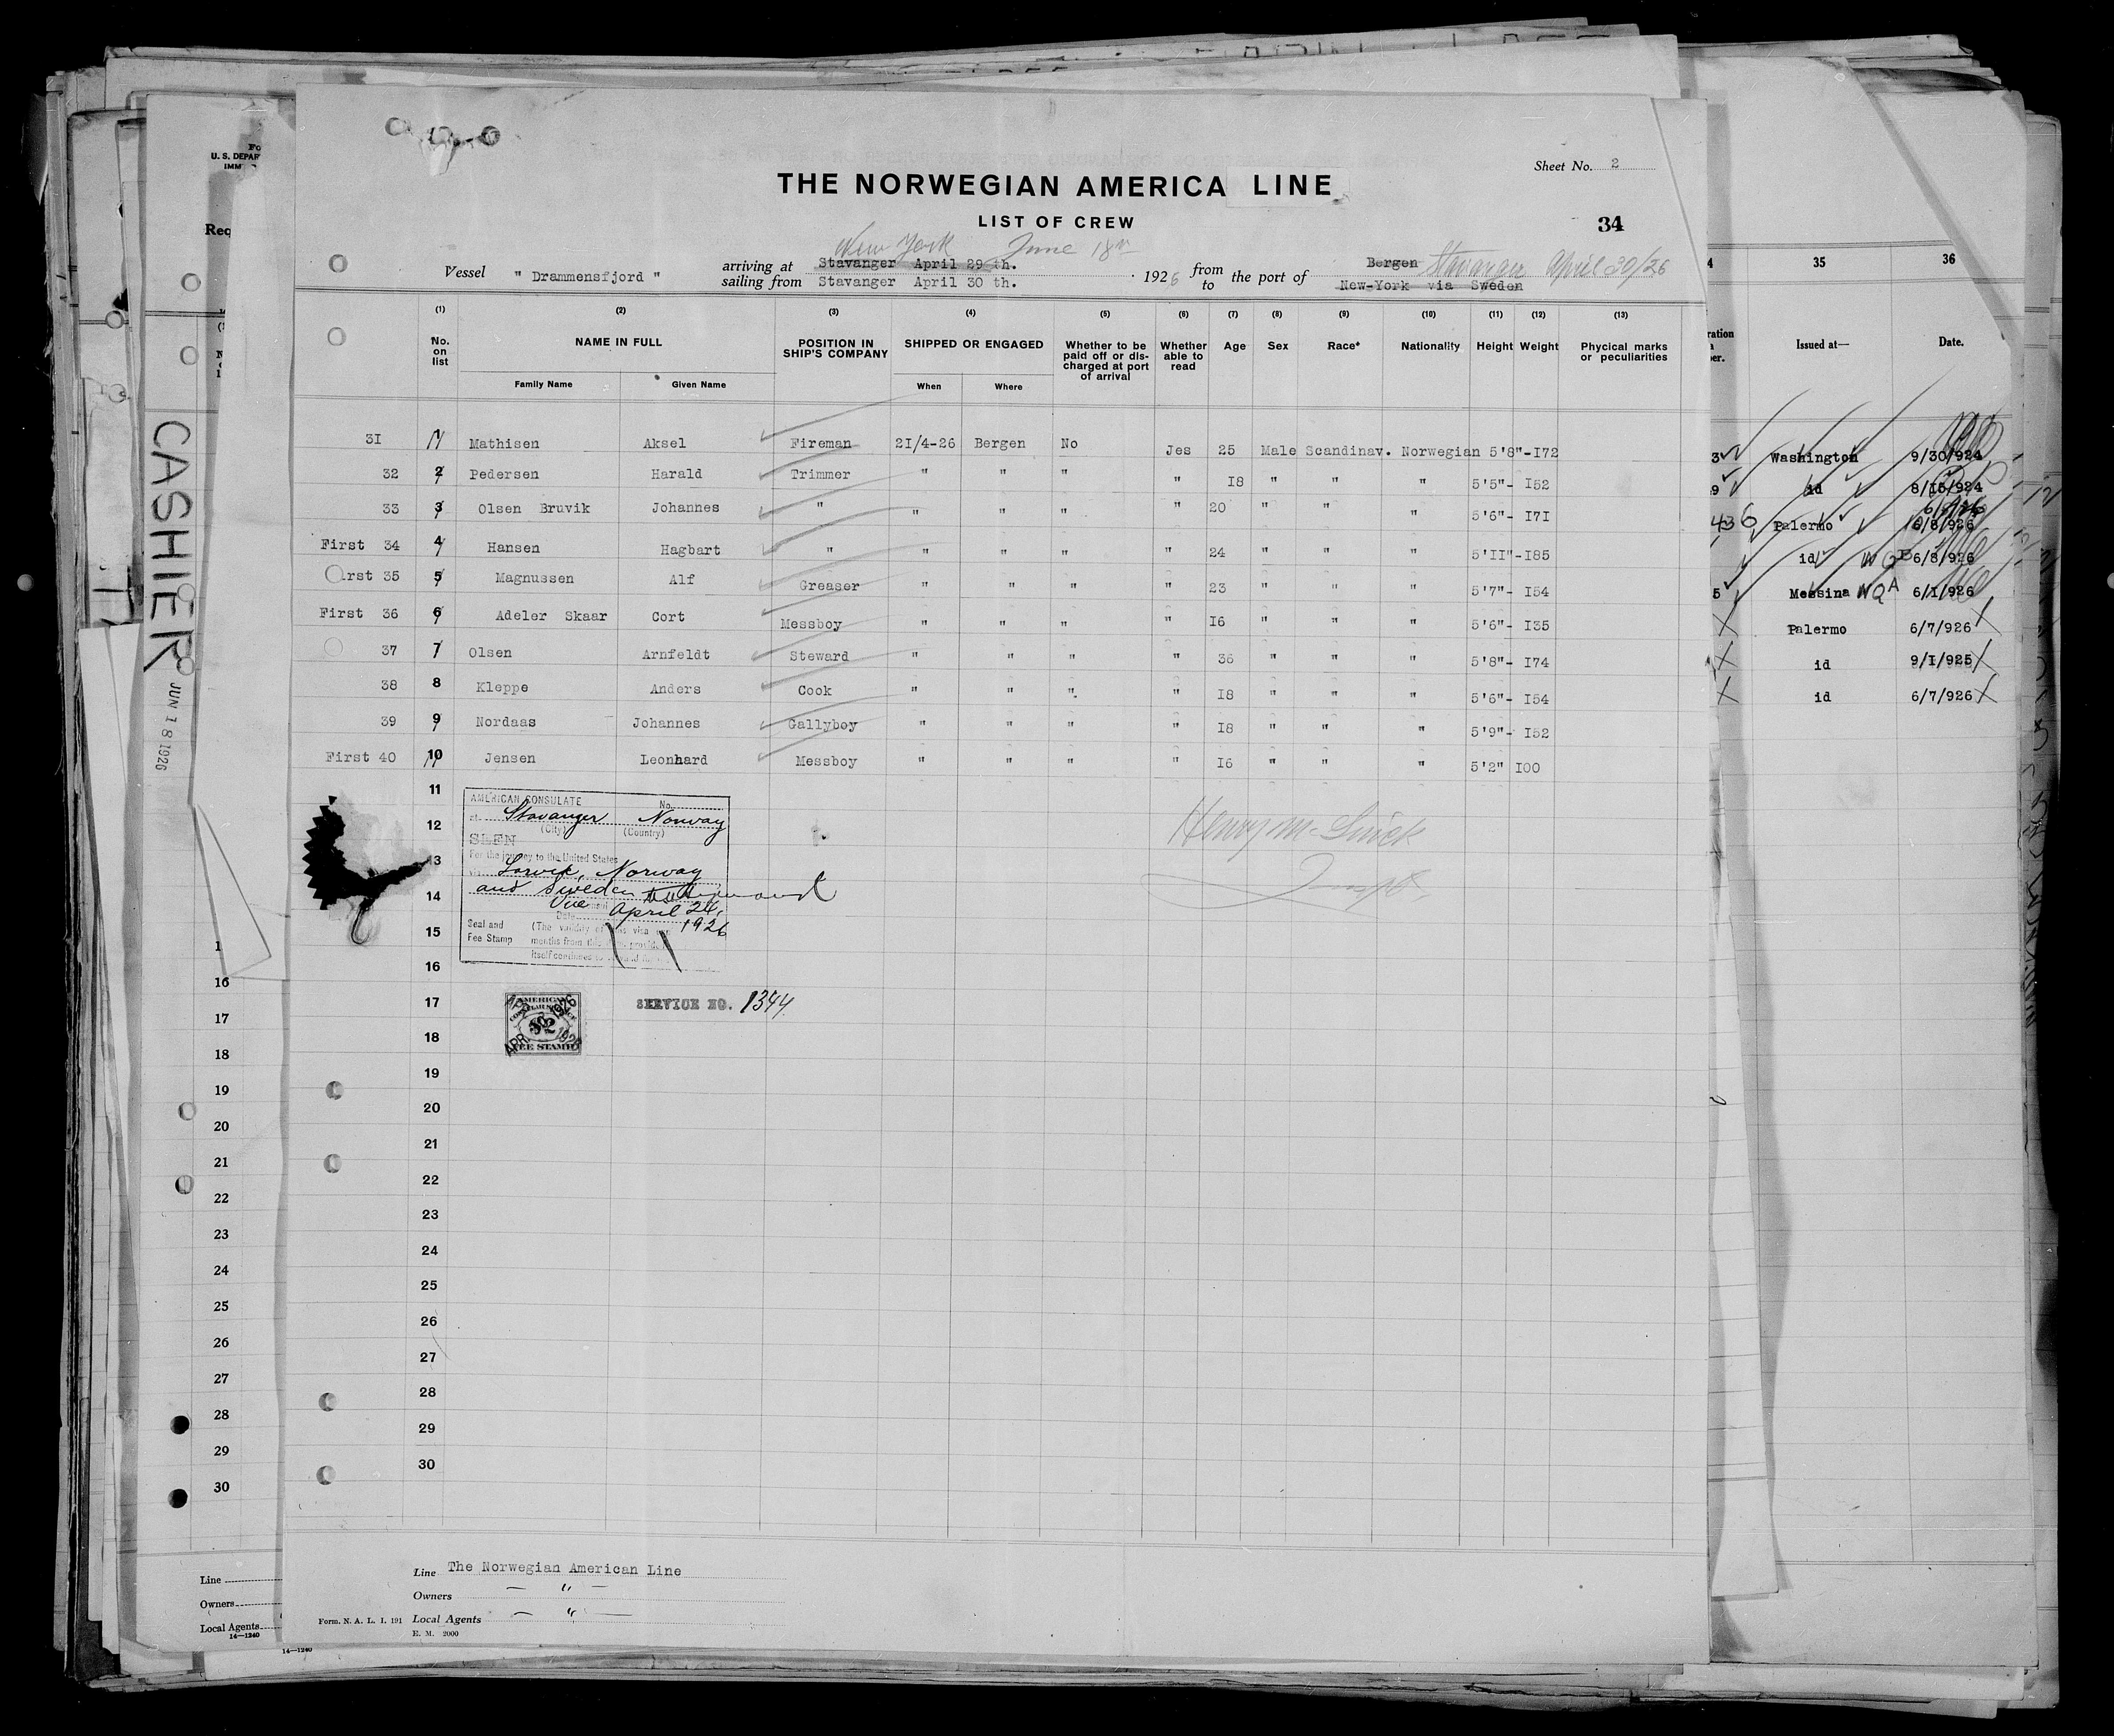 Sheet No. 2
THE NORWEGIAN AMERICA LINE
LIST OF CREW
34
New York June 18th
Vessel " Drammensfjord " arriving at Stavanger April 29 th. 1926 from the port of Bergen Stavanger April 30/26
sailing from Stavanger April 30 th. to New-York via Sweden
(1) (2) (3) (4) (5) (6) (7) (8) (9) (10) (11) (12) (13)
No. on list NAME IN FULL POSITION IN SHIP'S COMPANY SHIPPED OR ENGAGED Whether to be paid off or dis-charged at port of arrival Whether able to read Age Sex Race* Nationality Height Weight Phycical marks or peculiarities
Family Name Given Name When Where
31 1 Mathisen Aksel Fireman 21/4-26 Bergen No Jes 25 Male Scandinav. Norwegian 5'8"-172
32 2 Pedersen Harald Trimmer " " " " 18 " " " 5'5"- 152
33 3 Olsen Bruvik Johannes " " " " " 20 " " " 5'6"- 171
First 34 4 Hansen Hagbart " " " " " 24 " " " 5'11"-185
rst 35 5 Magnussen Alf Greaser " " " " 23 " " " 5'7"- 154
First 36 6 Adeler Skaar Cort Messboy " " " " 16 " " " 5'6"- 135
37 7 Olsen Arnfeldt Steward " " " " 36 " " " 5'8"- 174
38 8 Kleppe Anders Cook " " " " 18 " " " 5'6"- 154
39 9 Nordaas Johannes Gallyboy " " " " 18 " " " 5'9"- 152
First 40 10 Jensen Leonhard Messboy " " " " 16 " " " 5'2" 100
11
12
13
14
15
16
17
18
19
20
21
22
23
24
25
26
27
28
29
30
AMERICAN CONSULATE No.
at Stavanger Norway
(City) (Country)
SEEN
For the journey to the United States
Larvik, Norway
and Sweden
Vice
Date April 24, 1926
Seal and Fee Stamp (The validity of this visa
months from this date, provided
itself continues to
AMERICAN
FEE STAMP
$2
APR 1926
SERVICE NO. 1344
Henry M
Line The Norwegian American Line
Owners — " —
Local Agents — " —
Form. N. A. L. I. 191
E. M. 2000
U. S. DEPAR
IMM
Req
CASHIER
JUN 18 1926
16
17
18
19
20
21
22
23
24
25
26
27
28
29
30
Line
Owners
Local Agents
14—1240
14—1240
35 36
Issued at— Date.
Washington 9/30/924
id 8/15/924
436 Palermo 6/8/926
id 6/8/926
Messina 6/1/926
Palermo 6/7/926
id 9/1/925
id 6/7/926